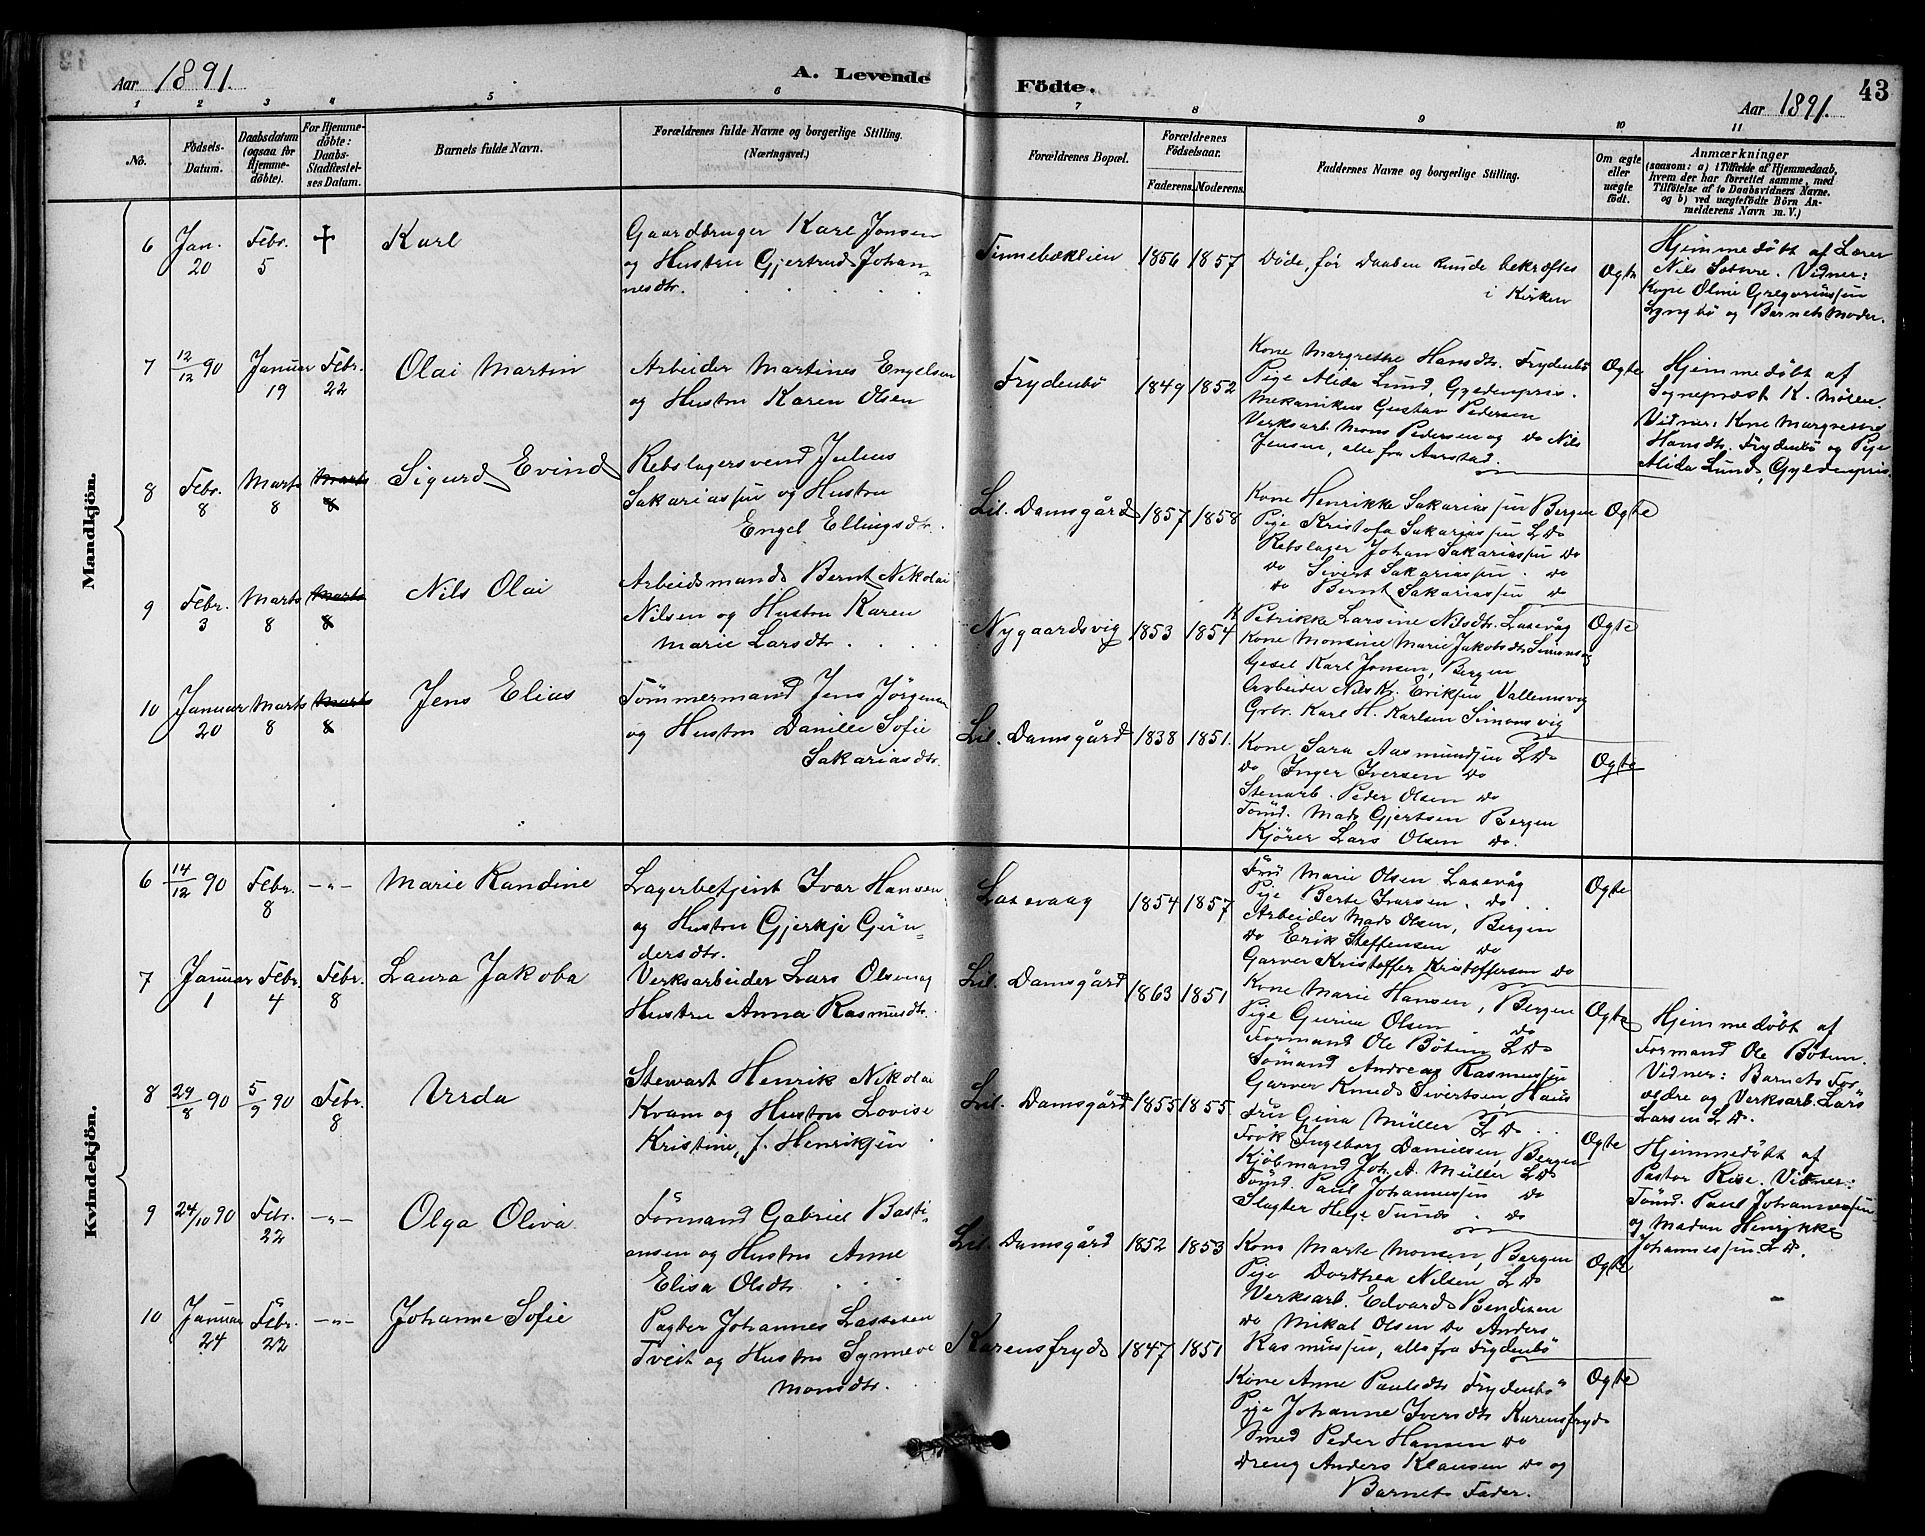 Aar 1891.
A. Levende
Födte.
Aar 1891.
43
1 2 3 4 5 6 7 8 9 10 11
No.
Födsels-
Datum.
Daabsdatum
(ogsaa for
Hjemme-
döbte).
For Hjemme-
döbte:
Daabs-
Stadfæstel-
ses Datum.
Barnets fulde Navn.
Forældrenes fulde Navne og borgerlige Stilling.
(Næringsvei.)
Forældrenes Bopæl.
Forældrenes
Födselsaar.
Faderens. Moderens.
Faddernes Navne og borgerlige Stilling.
Om ægte
eller
uægte
födt.
Anmærkninger
(saasom: a) i Tilfælde af Hjemmedaab,
hvem der har forrettet samme, med
Tilföielse af to Daabsvidners Navne.
og b) ved uægtefödte Börn An-
melderens Navn m. V.)
Mandkjön.
6 Jan. 20 Febr. 5 Karl
Gaardbruger Karl Jonsen
og Hustru Gjertrud Johan-
nesdtr.
Finnebæklien 1856 1857
Döde, før Daaben kunde bekræftes
i Kirken
Ægte
Hjemmedöbt af Lærer
Nils Sotvre. Vidner:
Kone Oline Gregoriussen
Lyngbö og Barnets Moder.
7 12/12 90 Januar 19 Febr. 22 Olai Martin
Arbeider Martines Engelsen
og Hustru Karen Olsen
Frydenbö 1849 1852
Kone Margrethe Hansdtr. Frydenbö
Pige Alida Lund, Gyldenpris.
Mekanikus Gustav Pedersen
Verksarb. Mons Pedersen og do Nils
Jensen, alle fra Aarstad.
Ægte
Hjemmedöbt af
Sogneprest K. Möller.
Vidner: Kone Margrethe
Hansdtr. Frydenbö og Pige
Alida Lund, Gyldenpris.
8 Febr. 8 Marts 8 Marts 8 Sigurd Evind
Rebslagersvend Julius
Sakariassen og Hustru
Engel Ellingsdtr.
Lil. Damsgård 1857 1858
Kone Henrikke Sakariassen Bergen
Pige Kristofa Sakariassen L. D.
Rebslager Johan Sakariassen do
do Sivert Sakariassen do
do Bernt Sakariassen do
Ægte
9 Febr. 3 Marts 8 Marts 8 Nils Olai
Arbeidsmand Bernt Nikolai
Nilsen og Hustru Karen
Marie Larsdtr.
Nygaardsvig 1853 1854
K. Petrikke Larsine Nilsdtr. Laxevåg
Kone Monsine Marie Jakobsdtr Simonsvig
Gesel Karl Jonsen, Bergen
Arbeider Nils Kr. Eriksen Vallemsvig
Grbr. Karl H. Karlsen Simonsvig
Ægte
10 Januar 20 Marts 8 Marts 8 Jens Elias
Tömmermand Jens Jörgensen
og Hustru Danille Sofie
Sakariasdtr.
Lil. Damsgård 1838 1851.
Kone Sara Aasmundsen L. D.
do Inger Iversen do
Stenarb. Peder Olsen do
Tömd. Mads Gjertsen Bergen
Kjörer Lars Olsen do.
Ægte
Kvindekjön.
6 14/12 90 Febr. 8 -"- Marie Randine
Lagerbetjent Ivar Hansen
og Hustru Gjerkje Gun-
dersdtr.
Laxevaag 1854 1857
Frú Marie Olsen Laxevåg
Pige Berte Iversen do
Arbeider Mads Olsen, Bergen
do Erik Steffensen do
Garver Kristoffer Kristoffersen do
Ægte
7 Januar 1 Febr. 4 Febr. 8 Laura Jakoba
Verksarbeider Lars Olsen og
Hustru Anna Rasmusdtr.
Lil. Damsgård 1863 1851
Kone Marie Hansen, Bergen
Pige Gurine Olsen do
Formand Ole Bötun L. D.
Sömand Andreas Rasmussen
Garver Knud Sivertsen Haus
Ægte
Hjemmedöbt af
Formand Ole Bötun.
Vidner: Barnets For-
ældre og Verksarb. Lars
Larsen L. D.
8 29/8 90 5/9 90 Febr. 8
Stewart Henrik Nikolai
Kvam og Hustru Lovise
Kristine, f. Henriksen
Lil. Damsgård 1855 1855
Frú Gina Müller L. D.
Frök Ingeborg Danielsen, Bergen
Kjöbmand Joh. A. Müller L. D.
Tömd. Paul Johannessen do
Slagter Helge Tunds do
Ægte
Hjemmedöbt af
Pastor Rise. Vidner:
Tömd. Paul Johannessen
og Madam Henrykke
Johannessen L. D.
9 24/10 90 Febr. 22 -"- Olga Oliva
Formand Gabriel Basti-
ansen og Hustru Anne
Elisa Olsdtr.
Lil. Damsgård 1852 1853
Kone Marte Monsen, Bergen
Pige Dorthea Nilsen L. D.
Verksarb. Edvard Bendixen
do Mikal Olsen do Anders
Rasmussen, alle fra Frydenbö
Ægte
10 Januar 24 Febr. 22 -"- Johanne Sofie
Pagter Johannes Lassesen
Tveit og Hustru Synneve
Monsdtr.
Karensfryd 1847 1851
Kone Anne Paulsdtr Frydenbö
Pige Johanne Iversdtr Karensfryd
Smed Peder Hansen do
Dreng Anders Klausen do og
Barnets Fader.
Ægte